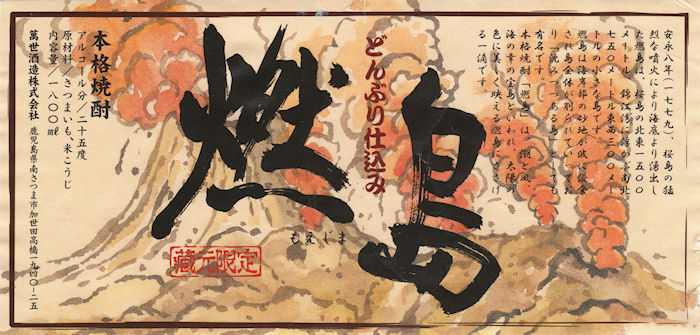 安永八年(一七七九)、桜島の猛
烈な噴火により海底より湧出し
た燃島は、桜島の北東一五〇〇
メートル、錦江湾に浮かぶ南北
七五〇メートル東西三〇〇メー
トルの小さな島です。
燃島は海岸部の砂地が波に侵食
され島全体が削られていってお
り「沈みつつある島」としても
有名です。
本格焼酎「燃島」は、潮と風、
海の幸の宝島といわれ、太陽の
色に美しく映える燃島にささげ
る一滴です。
どんぶり仕込み
燃島
もえじま
蔵元限定
本格焼酎
アルコール分/二十五度
原材料/さつまいも、米こうじ
内容量/一八〇〇㎖
萬世酒造株式会社 鹿児島県南さつま市加世田高橋一九四〇-二五